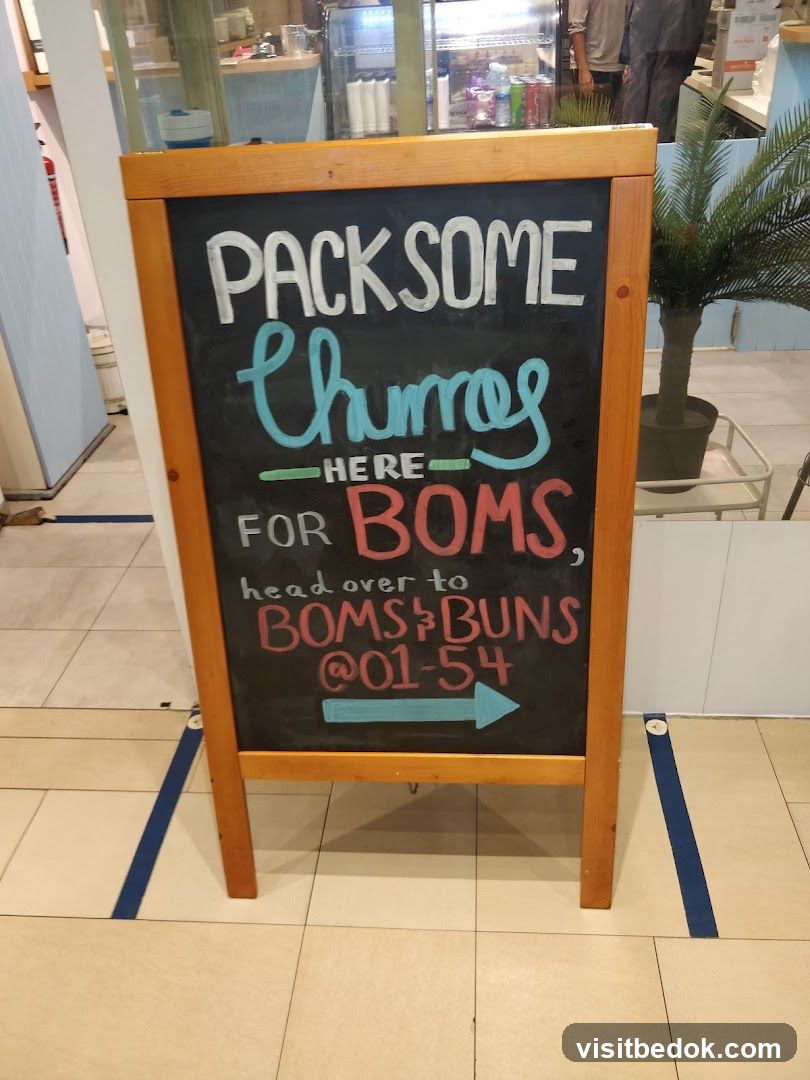 PACKSOME
Churros
HERE
FOR BOMS,
head over to
BOMS & BUNS
@01-54
visitbedok.com